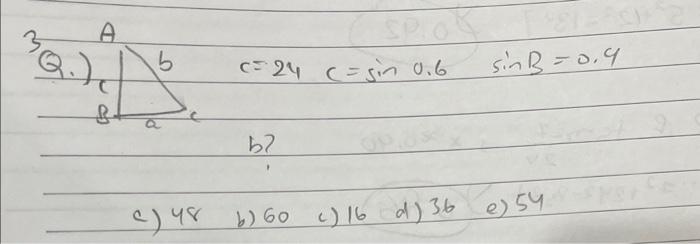 3
Q.)
A
b
c
B
a
c
c=24 c=sin 0.6 sinB=0.4
b?
a) 48 b) 60 c) 16 d) 36 e) 54